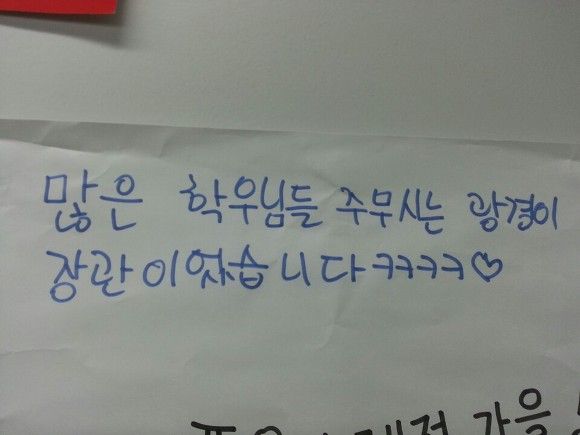 많은 학우님들 주무시는 광경이
장관이었습니다ㅋㅋㅋㅋ♡
가을!